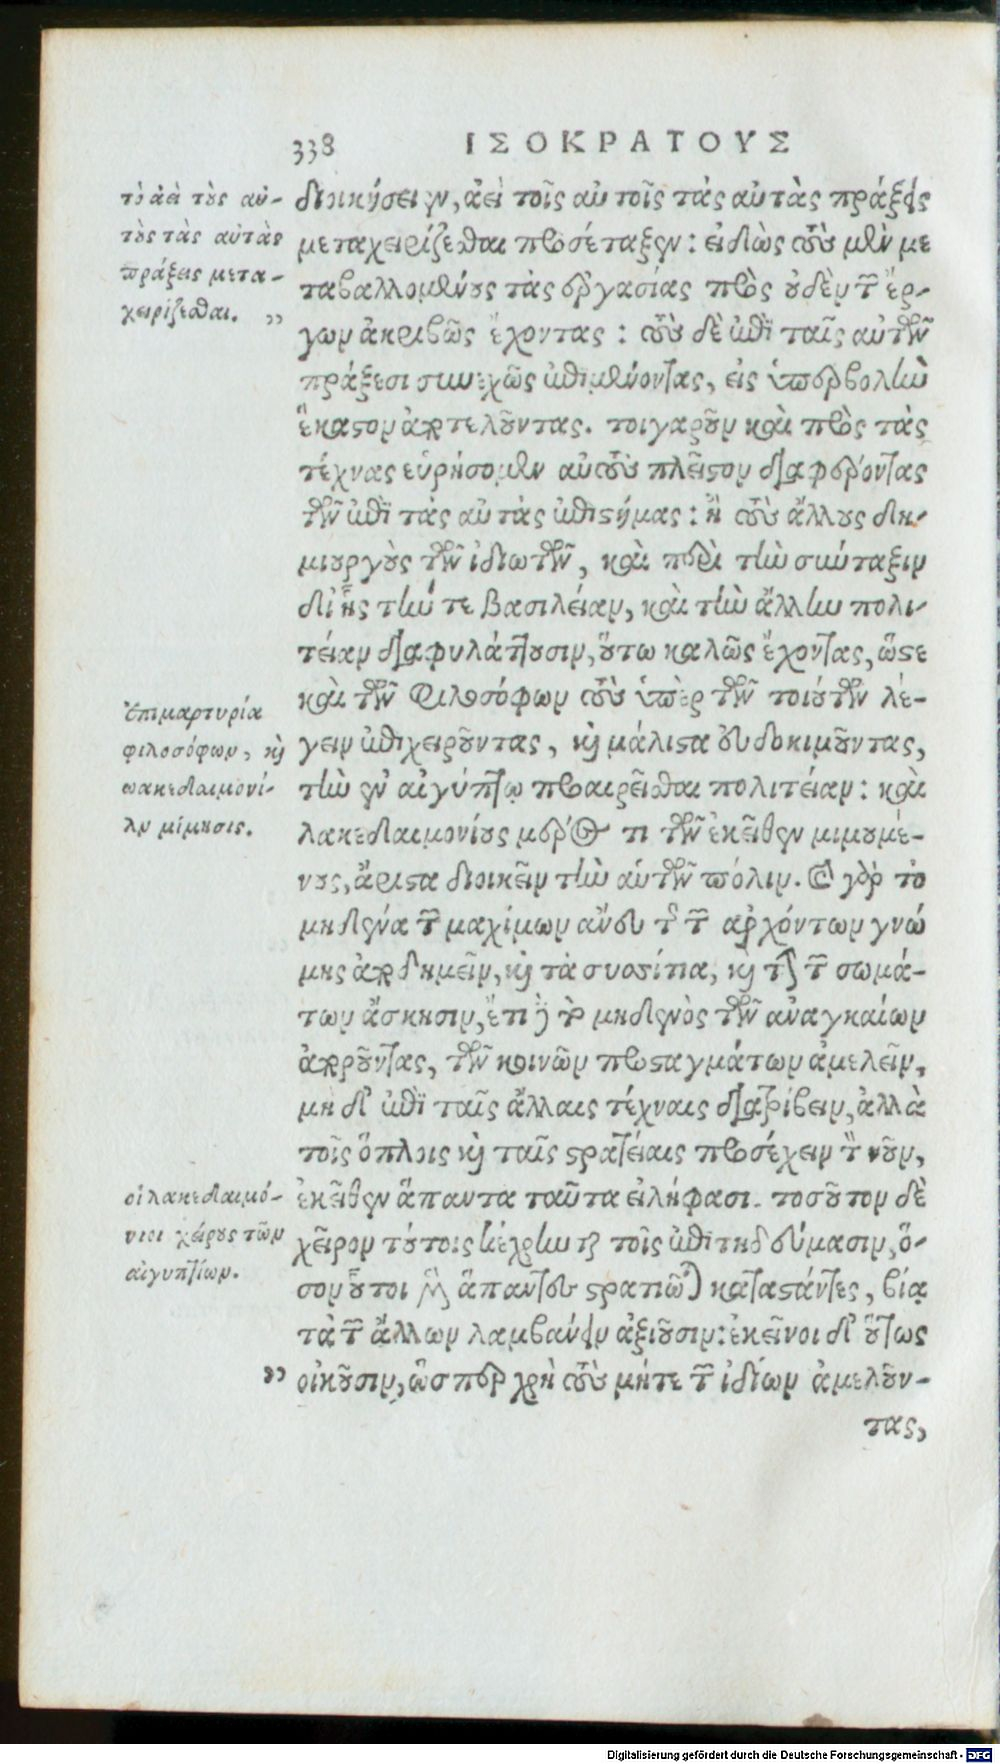 338 ΙΣΟΚΡΑΤΟΥΣ
τὸ ἀεὶ τοὺς αὐ-
τοὺς τὰς αὐτὰς
πράξεις μετα-
χειρίζεσθαι. ,,
διοικήσειεν, ἀεὶ τοῖς αὐτοῖς τὰς αὐτὰς πράξεις
μεταχειρίζεσθαι προσέταξεν: εἰδὼς τοὺς μὲν με
ταβαλλομένους τὰς ἐργασίας πρὸς οὐδὲν τῶν ἔρ-
γων ἀκριβῶς ἔχοντας: τοὺς δὲ ἐπὶ ταῖς αὐτῶν
πράξεσι συνεχῶς ἐπιμένοντας, εἰς ὑπερβολὴν
ἕκαστον ἀποτελοῦντας. τοιγαροῦν καὶ πρὸς τὰς
τέχνας εὑρήσομεν αὐτοὺς πλεῖστον διαφέροντας
τῶν ἐπὶ τὰς αὐτὰς ἐπιστήμας: ἢ τοὺς ἄλλους δη-
μιουργοὺς τῶν ἰδιωτῶν, καὶ περὶ τὴν σύνταξιν
δι' ἧς τήν τε βασιλείαν, καὶ τὴν ἄλλην πολι-
τείαν διαφυλάττουσιν, οὕτω καλῶς ἔχοντας, ὥστε
καὶ τῶν φιλοσόφων τοὺς ὑπὲρ τῶν τοιούτων λέ-
γειν ἐπιχειροῦντας, καὶ μάλιστα εὐδοκιμοῦντας,
τὴν ἐν αἰγύπτῳ προαιρεῖσθαι πολιτείαν: καὶ
λακεδαιμονίους μέρος τι τῶν ἐκεῖθεν μιμουμέ-
νους, ἄριστα διοικεῖν τὴν αὑτῶν πόλιν. καὶ γὰρ τὸ
μηδένα τῶν μαχίμων ἄνευ τῆς τῶν ἀρχόντων γνώ
μης ἀποδημεῖν, καὶ τὰ συσσίτια, καὶ τὴν τῶν σωμά-
των ἄσκησιν, ἔτι δὲ τὸ μηδενὸς τῶν ἀναγκαίων
ἀποροῦντας, τῶν κοινῶν προσταγμάτων ἀμελεῖν,
μηδ' ἐπὶ ταῖς ἄλλαις τέχναις διατρίβειν, ἀλλὰ
τοῖς ὅπλοις καὶ ταῖς στρατείαις προσέχειν τὸν νοῦν,
ἐκεῖθεν ἅπαντα ταῦτα εἰλήφασι. τοσοῦτον δὲ
χεῖρον τούτοις κέχρηνται τοῖς ἐπιτηδεύμασιν, ὅ-
σον οὗτοι μὲν ἅπαντες στρατιῶται καταστάντες, βίᾳ
τὰ τῶν ἄλλων λαμβάνειν ἀξιοῦσιν: ἐκεῖνοι δ' οὕτως
,, οἰκοῦσιν, ὥσπερ χρὴ τοὺς μήτε τῶν ἰδίων ἀμελοῦν-
τας,
ἐπιμαρτυρία
φιλοσόφων, καὶ
ωακεδαιμονί-
ων μίμησις.
οἱ λακεδαιμό-
νιοι χείρους τῶν
αἰγυπτίων.
Digitalisierung gefördert durch die Deutsche Forschungsgemeinschaft - DFG